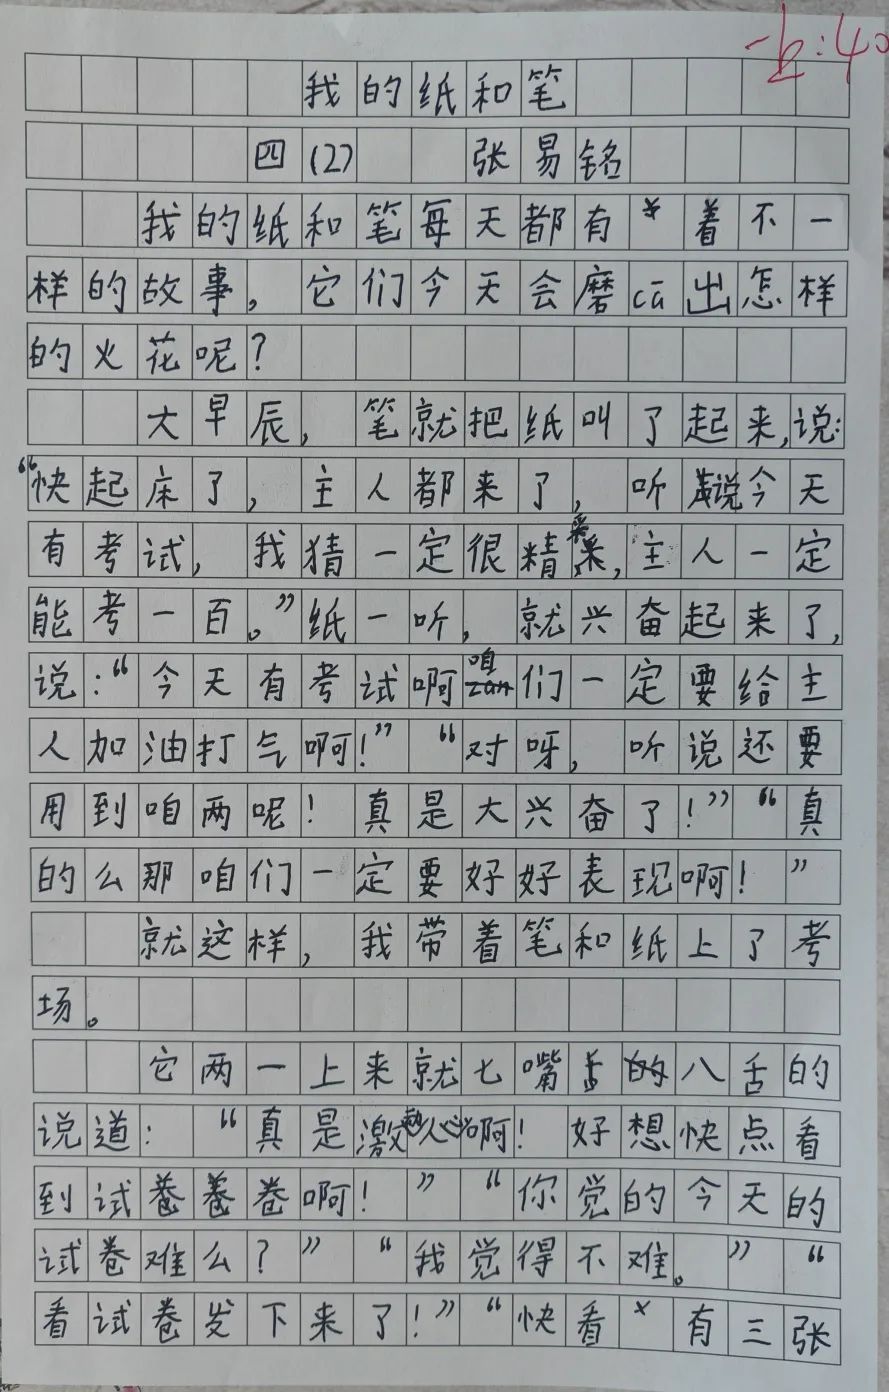 一上:40
我的纸和笔
四(2) 张易铭
我的纸和笔每天都有着不一
样的故事,它们今天会磨cā出怎样
的火花呢?
大早辰,笔就把纸叫了起来,说:
“快起床了,主人都来了,听说今天
有考试,我猜一定很精采,主人一定
能考一百。”纸一听,就兴奋起来了,
说:“今天有考试啊咱们一定要给主
人加油打气啊!”“对呀,听说还要
用到咱两呢!真是大兴奋了!”“真
的么那咱们一定要好好表现啊!”
就这样,我带着笔和纸上了考
场。
它两一上来就七嘴八舌的
说道:“真是激动人心啊!好想快点看
到试卷啊!”“你觉的今天的
试卷难么?”“我觉得不难。”“
看试卷发下来了!”“快看有三张